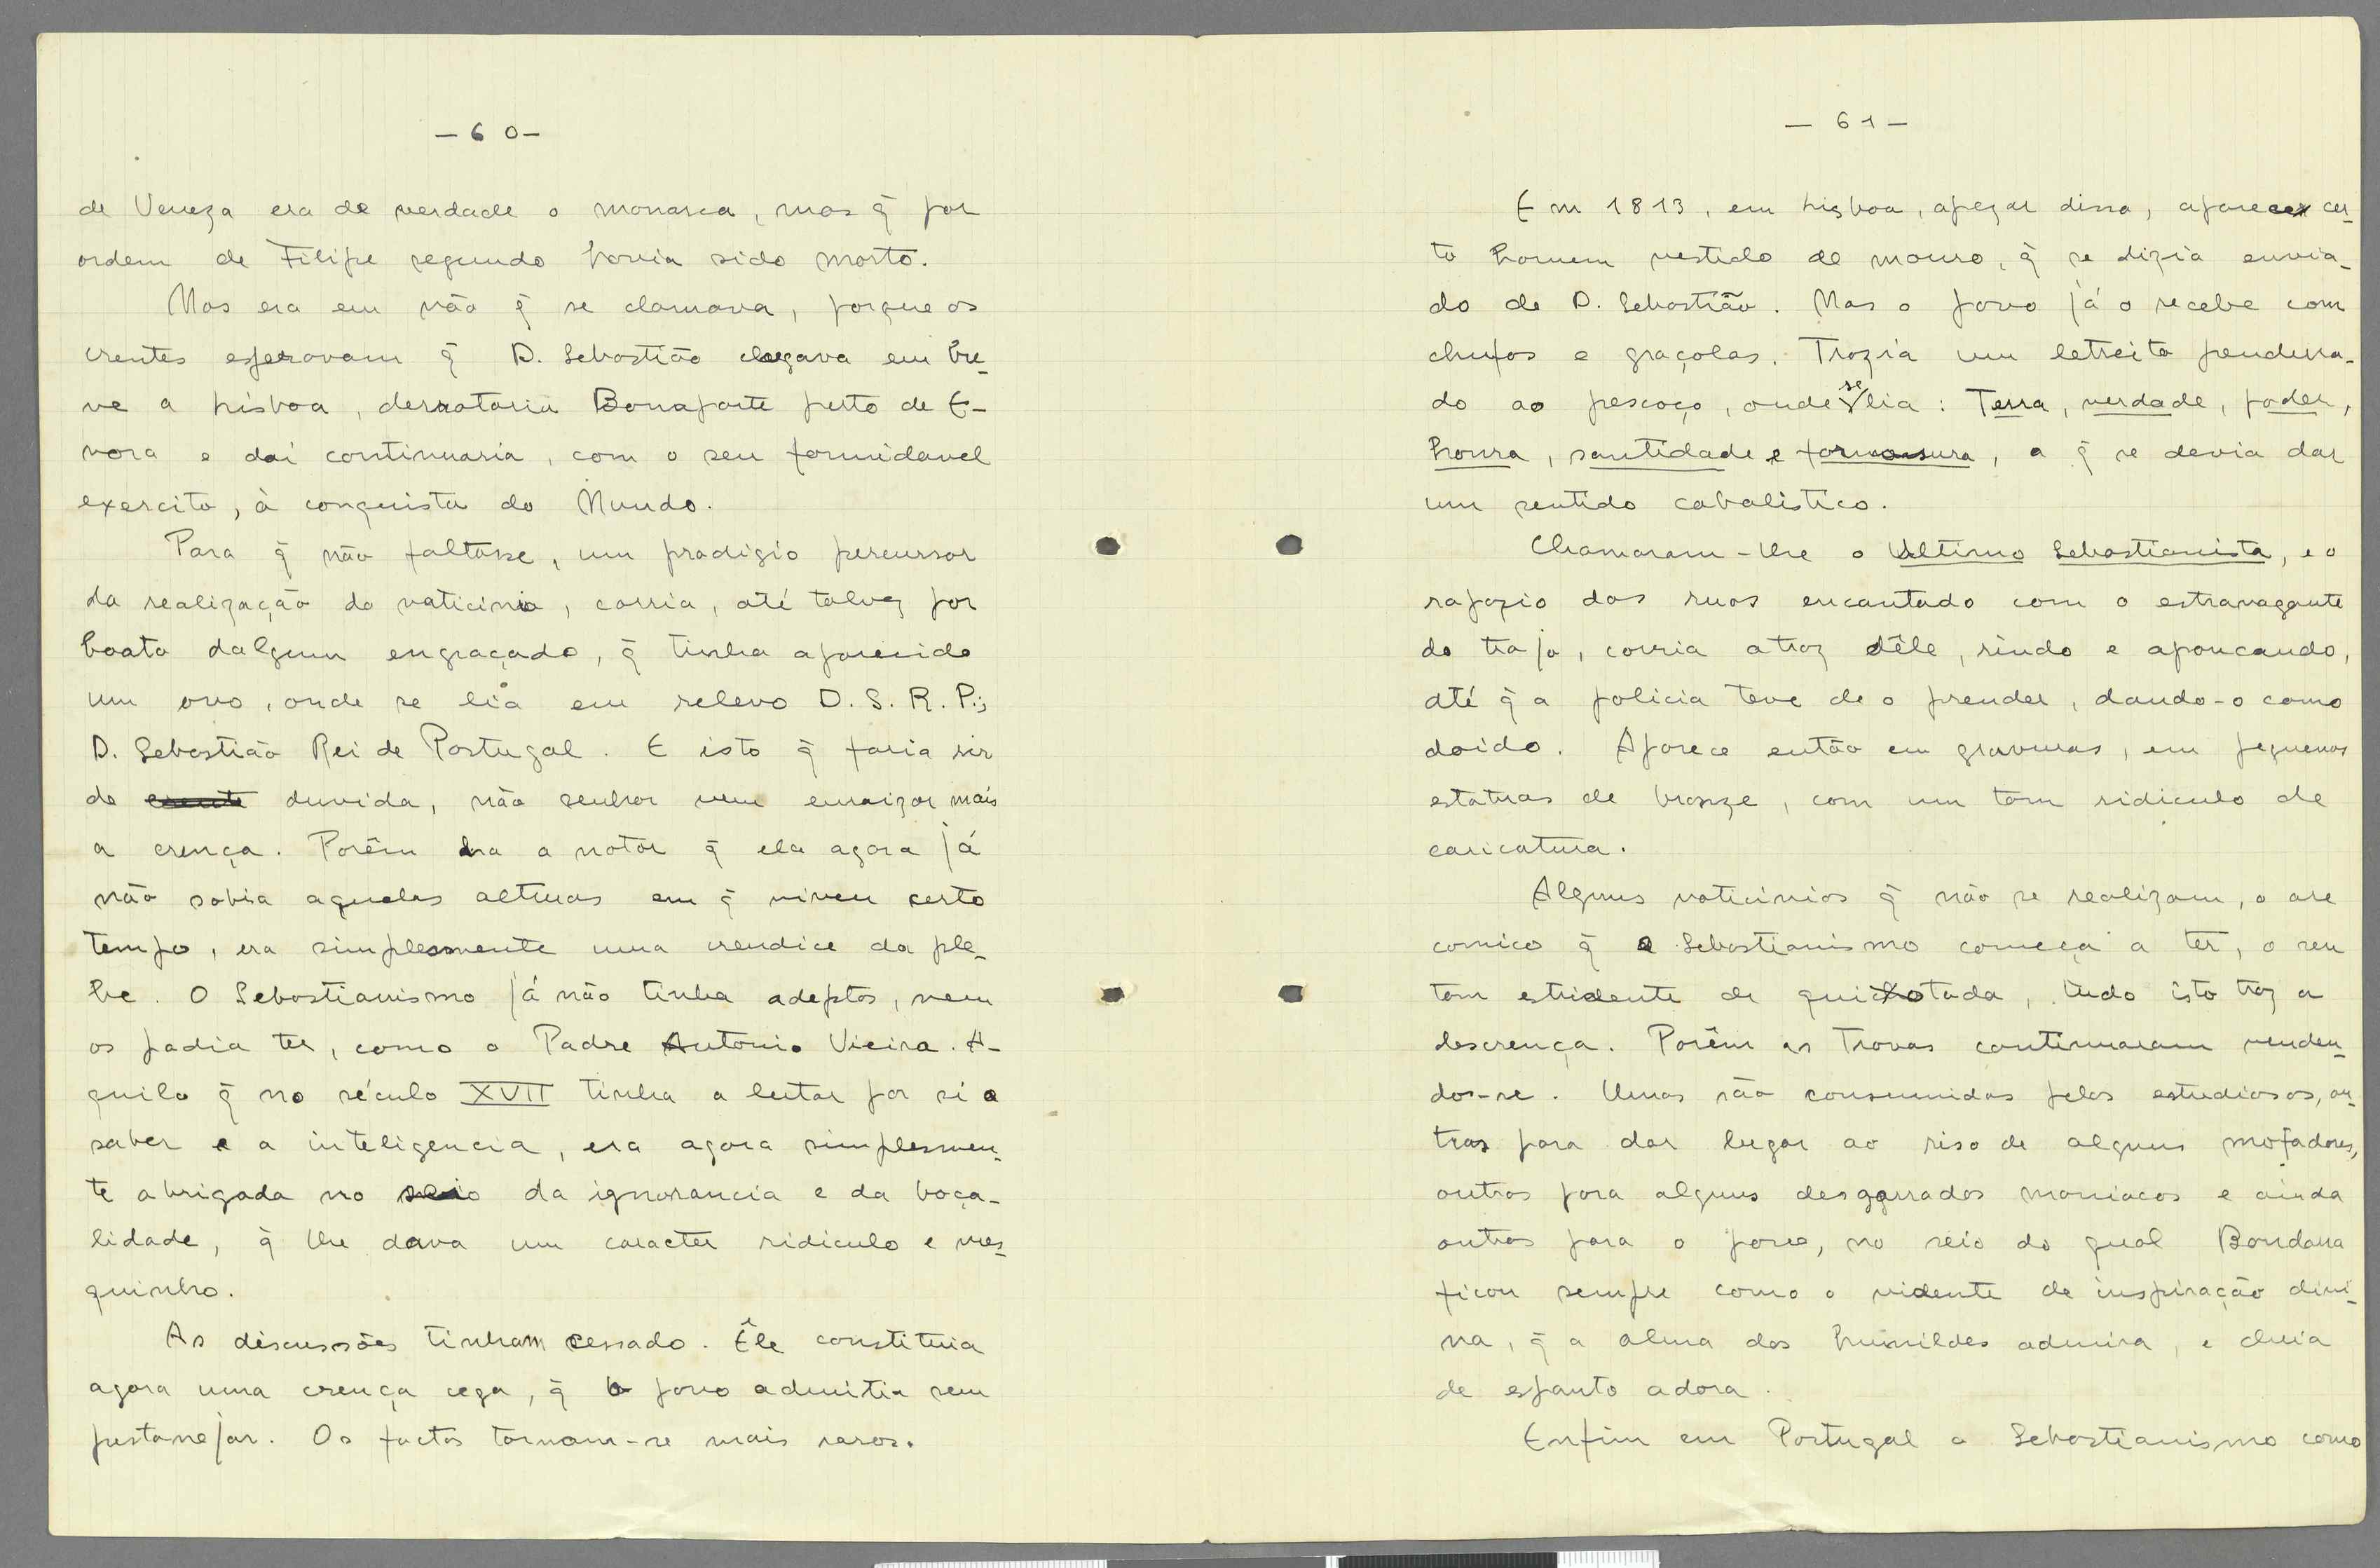 — 60 —
de Veneza era de verdade o monarca, mas q̃ por
ordem de Filipe segundo havia sido morto.
Mas era em vão q̃ se clamava, porque os
crentes esperavam q̃ D. Sebastião chegava em bre-
ve a Lisboa, derrotaria Bonaparte perto de E-
vora e daí continuaria, com o seu formidavel
exercito, à conquista do Mundo.
Para q̃ não faltasse, um prodigio percursor
da realização do vaticinio, corria, até talvez por
boato dalgum engraçado, q̃ tinha aparecido
um ovo, onde se lia em relevo D. S. R. P.;
D. Sebastião Rei de Portugal. E isto q̃ faria rir
de crente duvida, não senhor vem enraizar mais
a crença. Porêm ha a notar q̃ ela agora já
não sobia aquelas alturas em q̃ viveu certo
tempo, era simplesmente uma crendice da ple-
be. O Sebastianismo já não tinha adeptos, nem
os podia ter, como o Padre Antonio Vieira. A-
quilo q̃ no século XVII tinha a lutar por si o
saber e a inteligencia, era agora simplesmen-
te abrigada no seio da ignorancia e da boça-
lidade, q̃ lhe dava um caracter ridiculo e mes-
quinho.
As discussões tinham cessado. Êle constituia
agora uma crença cega, q̃ o povo admitia sem
pestanejar. Os factos tornam-se mais raros.
— 61 —
Em 1813, em Lisboa, apezar disso, aparece cer-
to homem vestido de mouro, q̃ se dizia envia-
do de D. Sebastião. Mas o povo já o recebe com
chufas e graçolas. Trazia um letreito pendura-
do ao pescoço, onde se lia: Terra, verdade, poder,
honra, santidade e formosura, a q̃ se devia dar
um sentido cabalistico.
Chamaram-lhe o Ultimo Sebastianista, e o
rapazio das ruas encantado com o estravagante
do trajo, corria atraz dêle, rindo e apoucando,
até q̃ a policia teve de o prender, dando-o como
doido. Aparece então em gravuras, em pequenas
estatuas de bronze, com um tom ridiculo de
caricatura.
Alguns vaticinios q̃ não se realizam, o are
comico q̃ o Sebastianismo começa a ter, o seu
tom estridente de quixotada, tudo isto traz a
descrença. Porêm as Trovas continuaram venden-
dos-se. Umas são consumidas pelos estudiosos, ou-
tras para dar lugar ao riso de alguns mofadores,
outras para alguns desgarrados maniacos e ainda
outras para o povo, no seio do qual Bandarra
ficou sempre como o vidente de inspiração divi-
na, q̃ a alma dos humildes admira, e cheia
de espanto adora.
Enfim em Portugal o Sebastianismo como